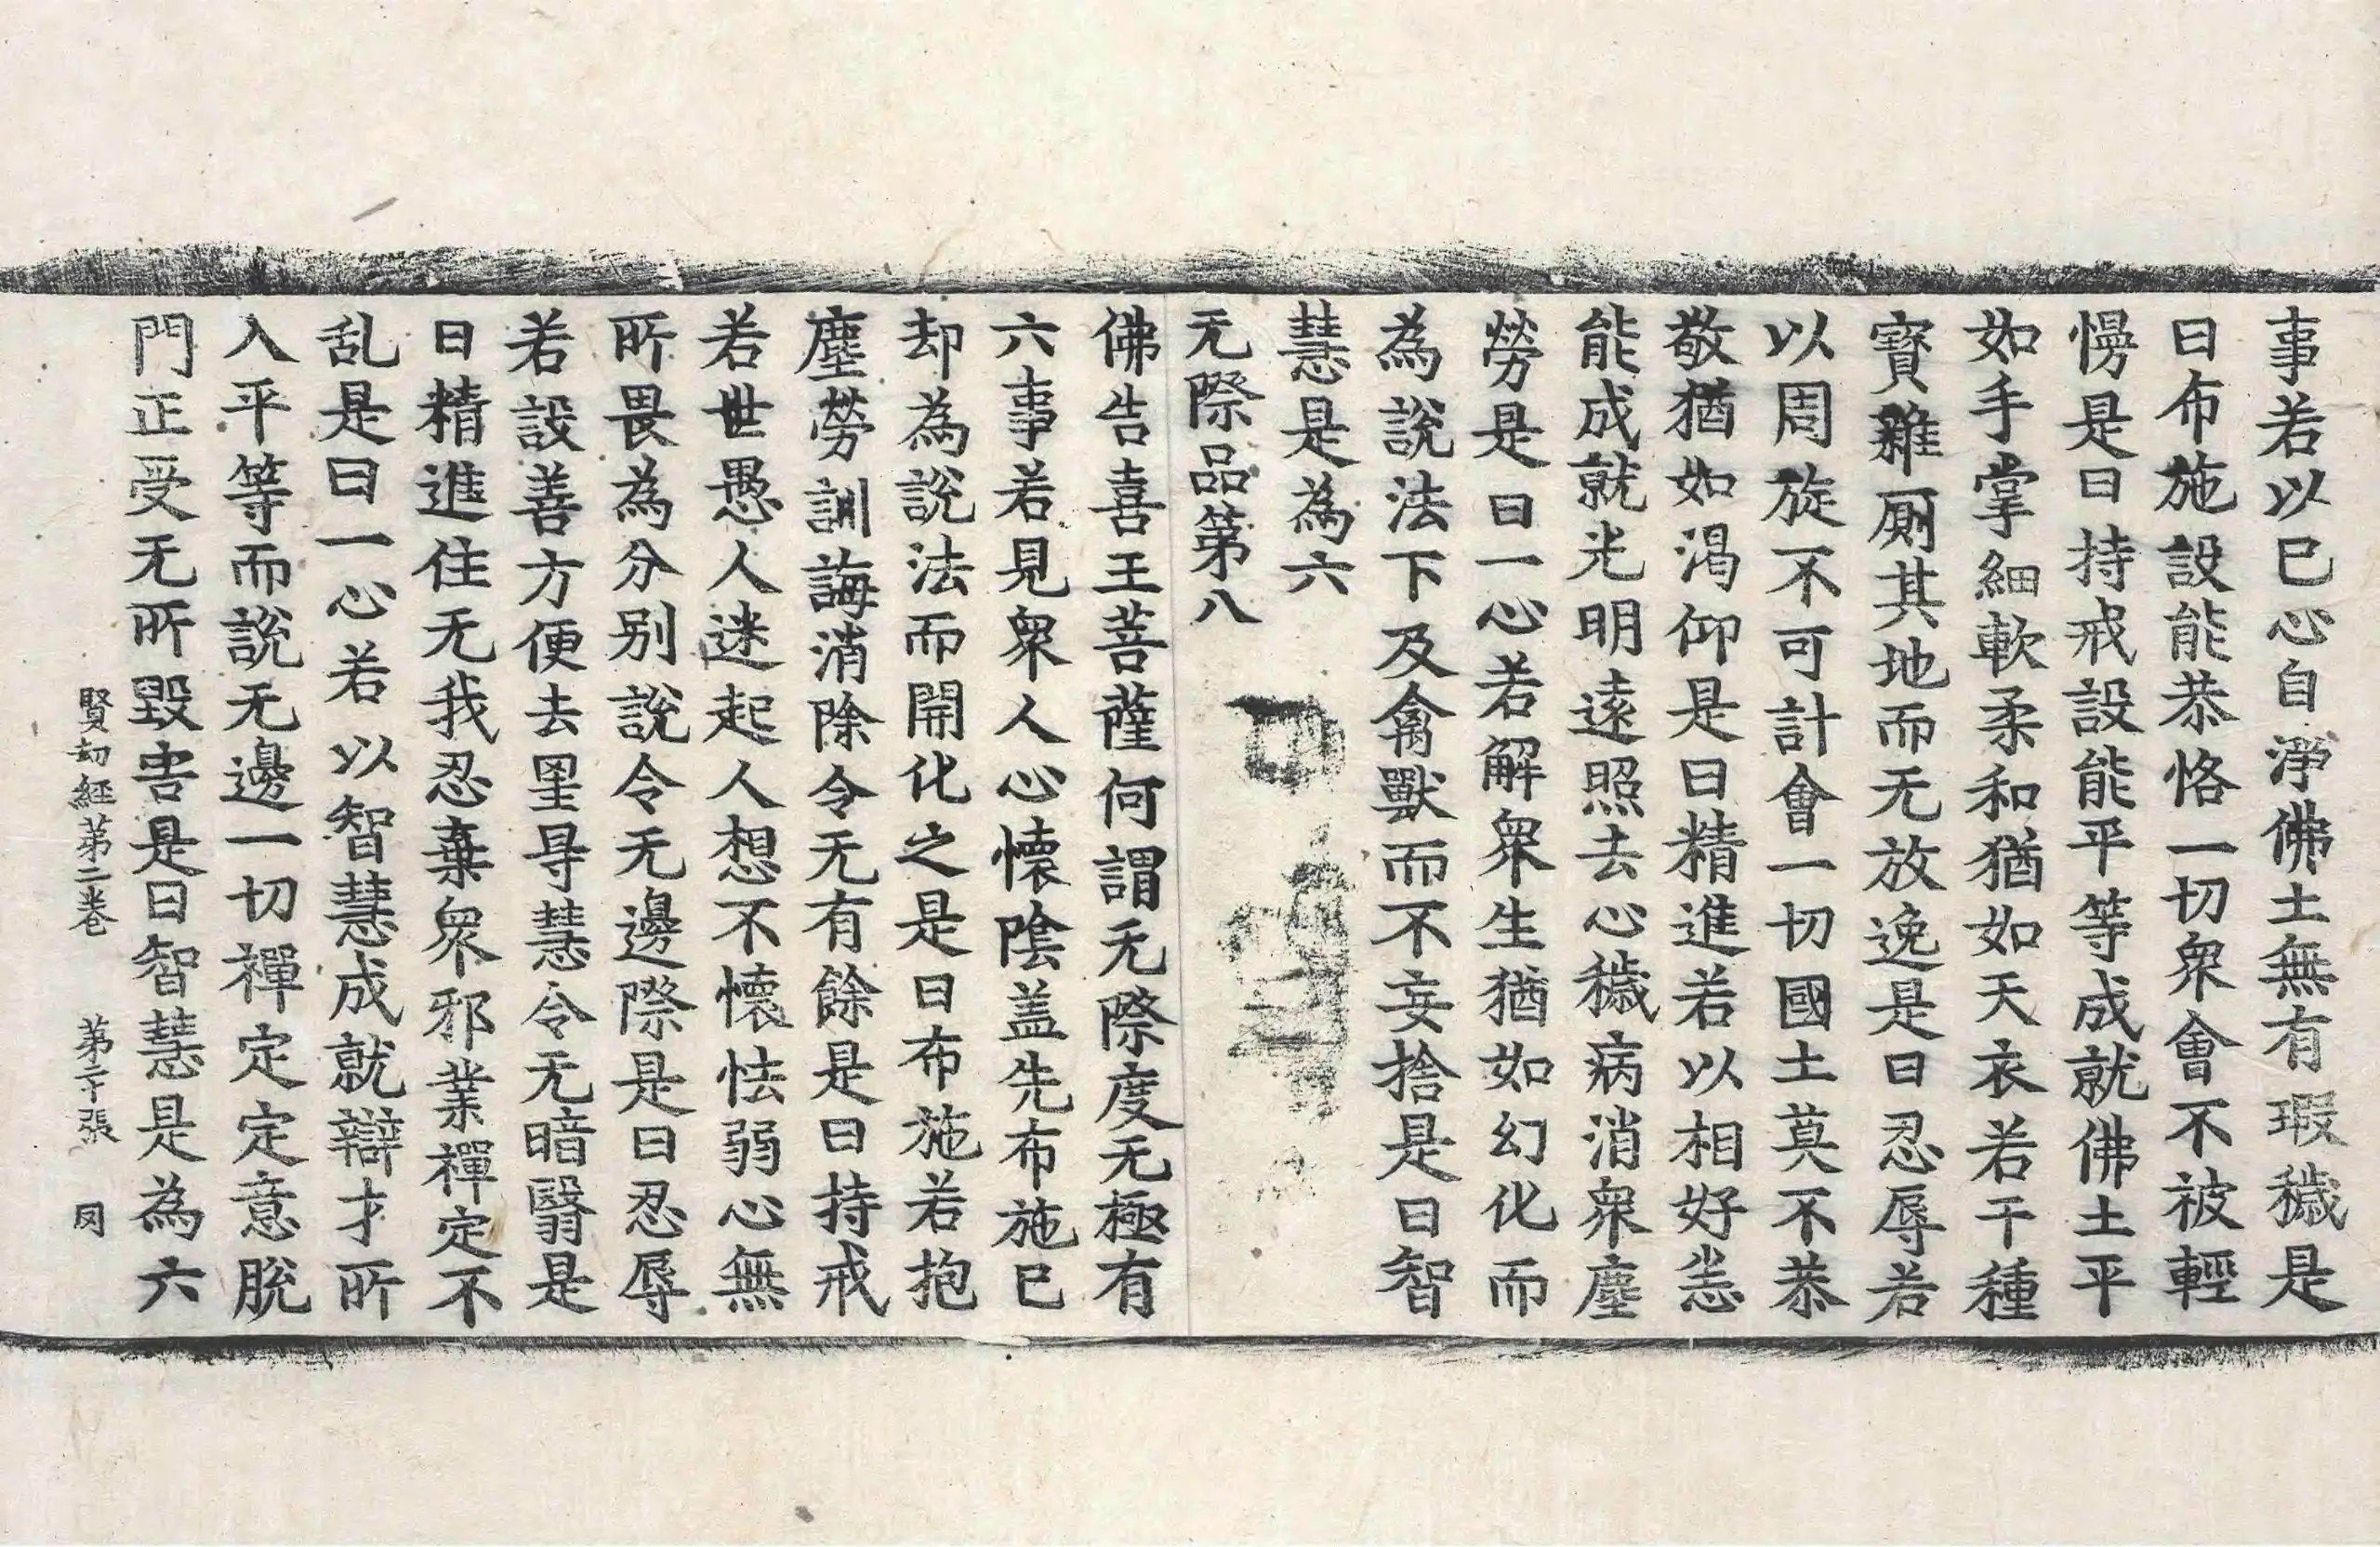 事若以己心自淨佛土無有瑕穢是
曰布施設能恭恪一切衆會不被輕
慢是曰持戒設能平等成就佛土平
如手掌細軟柔和猶如天衣若干種
寳雜厠其地而无放逸是曰忍辱若
以周旋不可計會一切國土莫不恭
敬猶如渴仰是曰精進若以相好恙
能成就光明遠照去心穢病消衆塵
勞是曰一心若解衆生猶如幻化而
為說法下及禽獸而不妄捨是曰智
慧是為六
无際品第八
佛告喜王菩薩何謂无際度无極有
六事若見衆人心懷陰盖先布施已
却為說法而開化之是曰布施若抱
塵勞訓誨消除令无有餘是曰持戒
若世愚人迷起人想不懷怯弱心無
所畏為分别說令无邊際是曰忍辱
若設善方便去里导慧令无暗翳是
曰精進住无我忍棄衆邪業禪定不
乱是曰一心若以智慧成就辯才所
入平等而說无邊一切禪定定意脫
門正受无所毀害是曰智慧是為六
賢劫經第二卷 第二十張 𠙊